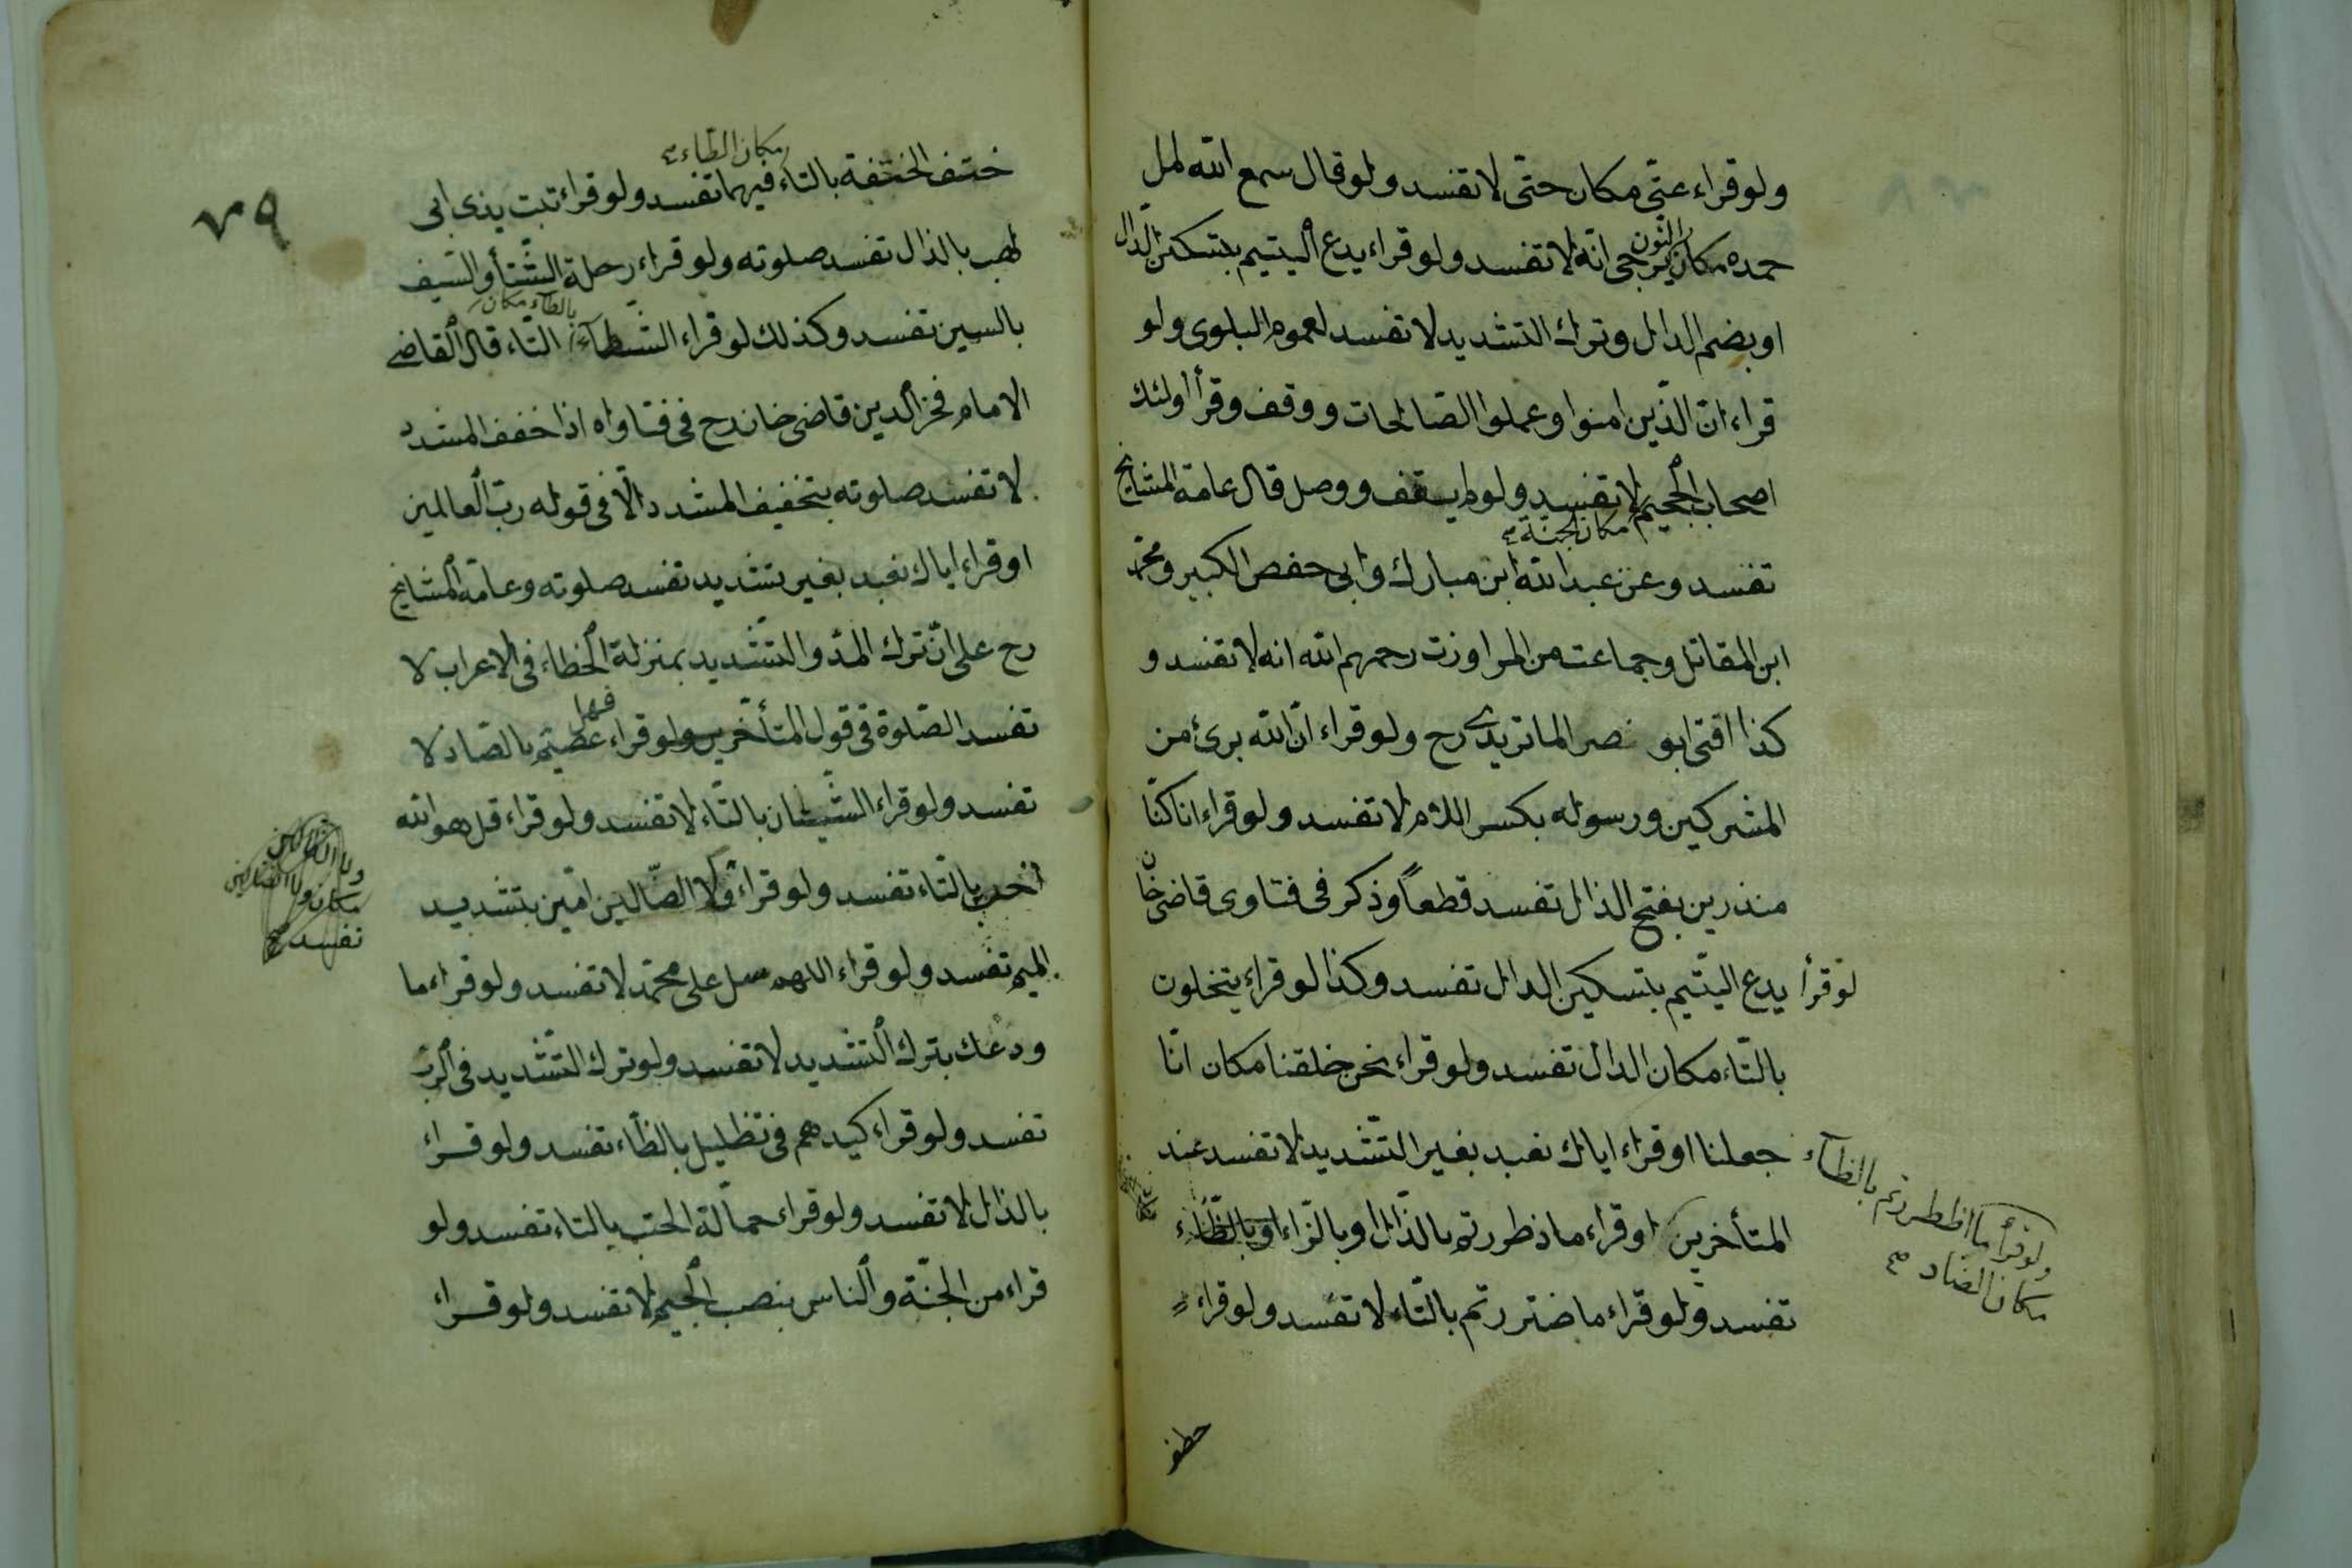 ولو قراء عتى مكان حتى لا تفسد ولو قال سمع الله لمل
حمده مكان النون يرجى انه لا تفسد ولو قراء يدع اليتيم بتسكين الدال
او بضم الدال وترك التشديد لا تفسد لعموم البلوى ولو
قراء ان الذين امنوا وعملوا الصالحات ووقف وقرأ اولئك
اصحاب الجحيم لا تفسد ولو لم يقف ووصل قال عامة المشايخ
مكان الجنة صح
تفسد وعن عبد الله ابن مبارك وابى حفص الكبير ومحمد
ابن المقاتل وجماعة من المراوزت رحمهم الله انه لا تفسد و
كذا افتى ابو نصر الماتريدى رح ولو قراء ان الله برئ من
المشركين ورسوله بكسر اللام لا تفسد ولو قراء انا كنا
منذرين بفتح الذال تفسد قطعا وذكر فى فتاوى قاضى خان
لو قرأ يدع اليتيم بتسكين الدال تفسد وكذا لو قراء يتخلون
بالتاء مكان الدال تفسد ولو قراء نحن خلقنا مكان انا
جعلنا او قراء اياك نعبد بغير التشديد لا تفسد عند
المتأخرين او قراء ماذطررتم بالذال او بالزاء او بالظاء
تفسد ولو قراء ماضتررتم بالتاء لا تفسد ولو قراء
ولو قرأ ما اظطررتم بالظاء
مكان الضاد صح
خطف
مكان الطاء صح
ختف الختفة بالتاء فيهما تفسد ولو قراء تبت يذى ابى
لهب بالذال تفسد صلوته ولو قراء رحلة الشتأ والسيف
بالسين تفسد وكذلك لو قراء الشطآء بالطاء مكان التاء قال القاضى
الامام فخر الدين قاضى خان رح فى فتاواه اذا خفف المشدد
لا تفسد صلوته بتخفيف المشدد الا فى قوله رب العالمين
او قراء اياك نعبد بغير تشديد تفسد صلوته وعامة المشايخ
رح على ان ترك المد والتشديد بمنزلة الخطاء فى الاعراب لا
تفسد الصلوة فى قول المتأخرين ولو قراء فهل عصيتم بالصاد لا
تفسد ولو قراء الشيتان بالتاء لا تفسد ولو قراء قل هو الله
احت بالتاء تفسد ولو قراء ولا الضالين امين بتشديد
الميم تفسد ولو قراء اللهم سل على محمد لا تفسد ولو قراء ما
ودعك بترك التشديد لا تفسد ولو ترك التشديد فى الرب
تفسد ولو قراء كيدهم فى تظليل بالظاء تفسد ولو قراء
بالذال لا تفسد ولو قراء حمالة الحتب بالتاء تفسد ولو
قراء من الجنة والناس بنصب الجيم لا تفسد ولو قراء
مكان ولا الضالين
تفسد صح
٧٩